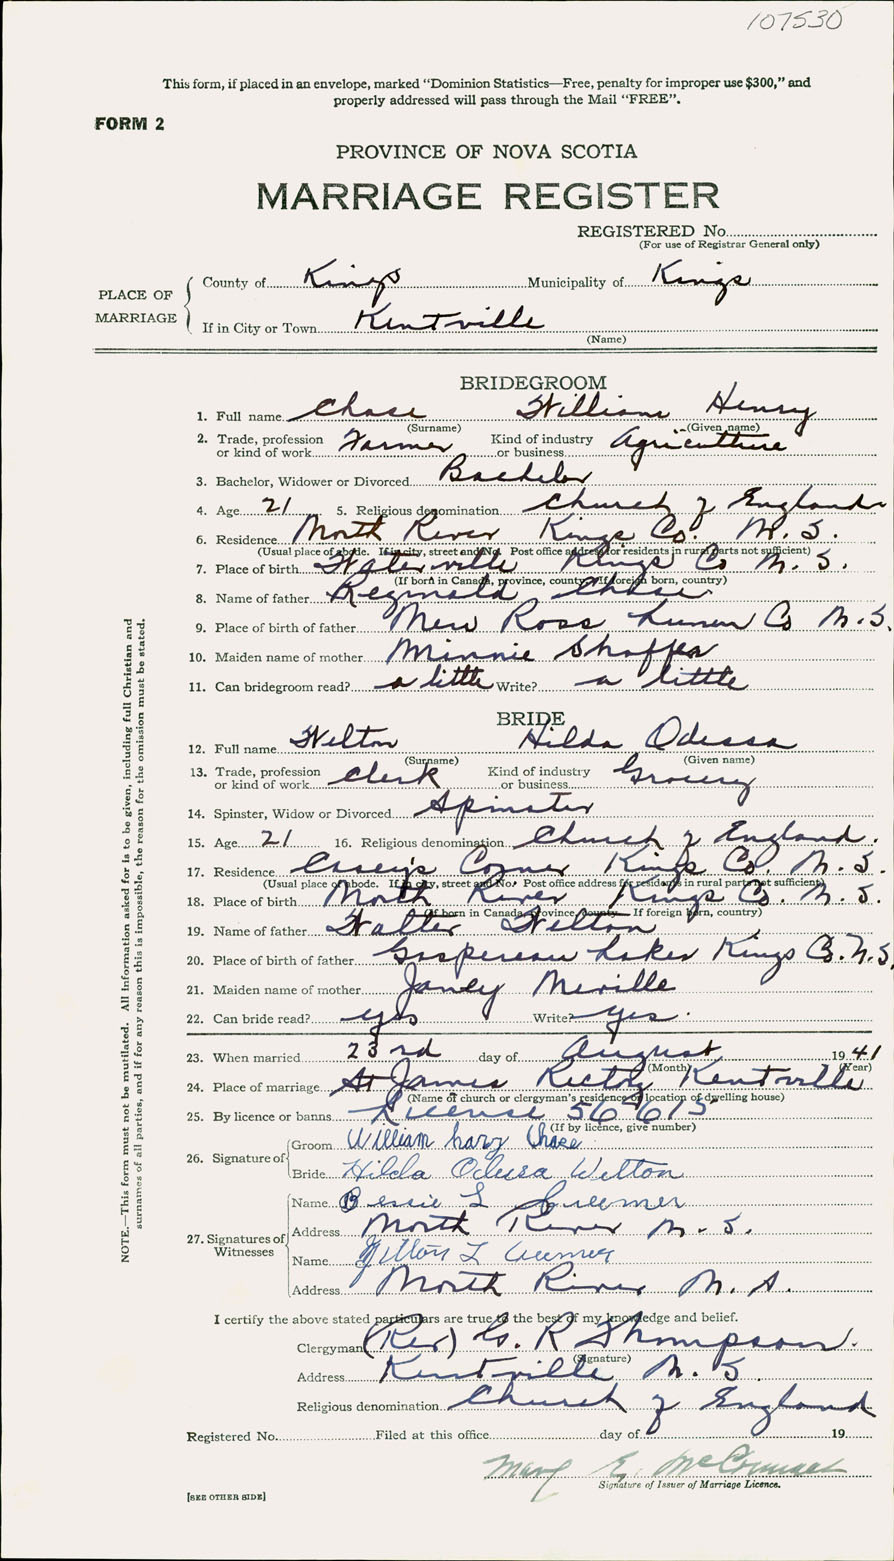 107530
This form, if placed in an envelope, marked “Dominion Statistics—Free, penalty for improper use $300,” and
properly addressed will pass through the Mail “FREE”.
FORM 2
PROVINCE OF NOVA SCOTIA
MARRIAGE REGISTER
REGISTERED No.
(For use of Registrar General only)
PLACE OF MARRIAGE
County of Kings Municipality of Kings
If in City or Town Kentville
(Name)
BRIDEGROOM
1. Full name Chase William Henry
(Surname) (Given name)
2. Trade, profession or kind of work Farmer Kind of industry or business Agriculture
3. Bachelor, Widower or Divorced Bachelor
4. Age 21 5. Religious denomination Church of England
6. Residence North River Kings Co. N.S.
(Usual place of abode. If in city, street and No. Post office address for residents in rural parts not sufficient)
7. Place of birth Waterville Kings Co N.S.
(If born in Canada, province, county. If foreign born, country)
8. Name of father Reginald Chase
9. Place of birth of father New Ross Lunen Co N.S.
10. Maiden name of mother Minnie Shaffer
11. Can bridegroom read? a little Write? a little
BRIDE
12. Full name Welton Hilda Odessa
(Surname) (Given name)
13. Trade, profession or kind of work Clerk Kind of industry or business Grocery
14. Spinster, Widow or Divorced Spinster
15. Age 21 16. Religious denomination Church of England.
17. Residence Casey's Corner Kings Co. N.S.
(Usual place of abode. If in city, street and No. Post office address for residents in rural parts not sufficient)
18. Place of birth North River Kings Co. N.S.
(If born in Canada, province, county. If foreign born, country)
19. Name of father Walter Welton
20. Place of birth of father Gaspereau Lakes Kings Co. N.S.
21. Maiden name of mother Janey Meville
22. Can bride read? yes Write? yes.
23. When married 23rd day of August 1941
(Month) (Year)
24. Place of marriage St James Rectory Kentville
(Name of church or clergyman's residence or location of dwelling house)
25. By licence or banns License 56615
(If by licence, give number)
26. Signature of
Groom William Chase
Bride Hilda Odessa Welton
27. Signatures of Witnesses
Name Bessie L
Address North River N.S.
Name L
Address North River N.S.
I certify the above stated particulars are true to the best of my knowledge and belief.
Clergyman (Rev) G. R Thompson.
(Signature)
Address Kentville N.S.
Religious denomination Church of England
Registered No. Filed at this office day of 19
Mary E. McCormack
Signature of Issuer of Marriage Licence.
[SEE OTHER SIDE]
NOTE.—This form must not be mutilated. All Information asked for is to be given, including full Christian and
surnames of all parties, and if for any reason this is impossible, the reason for the omission must be stated.